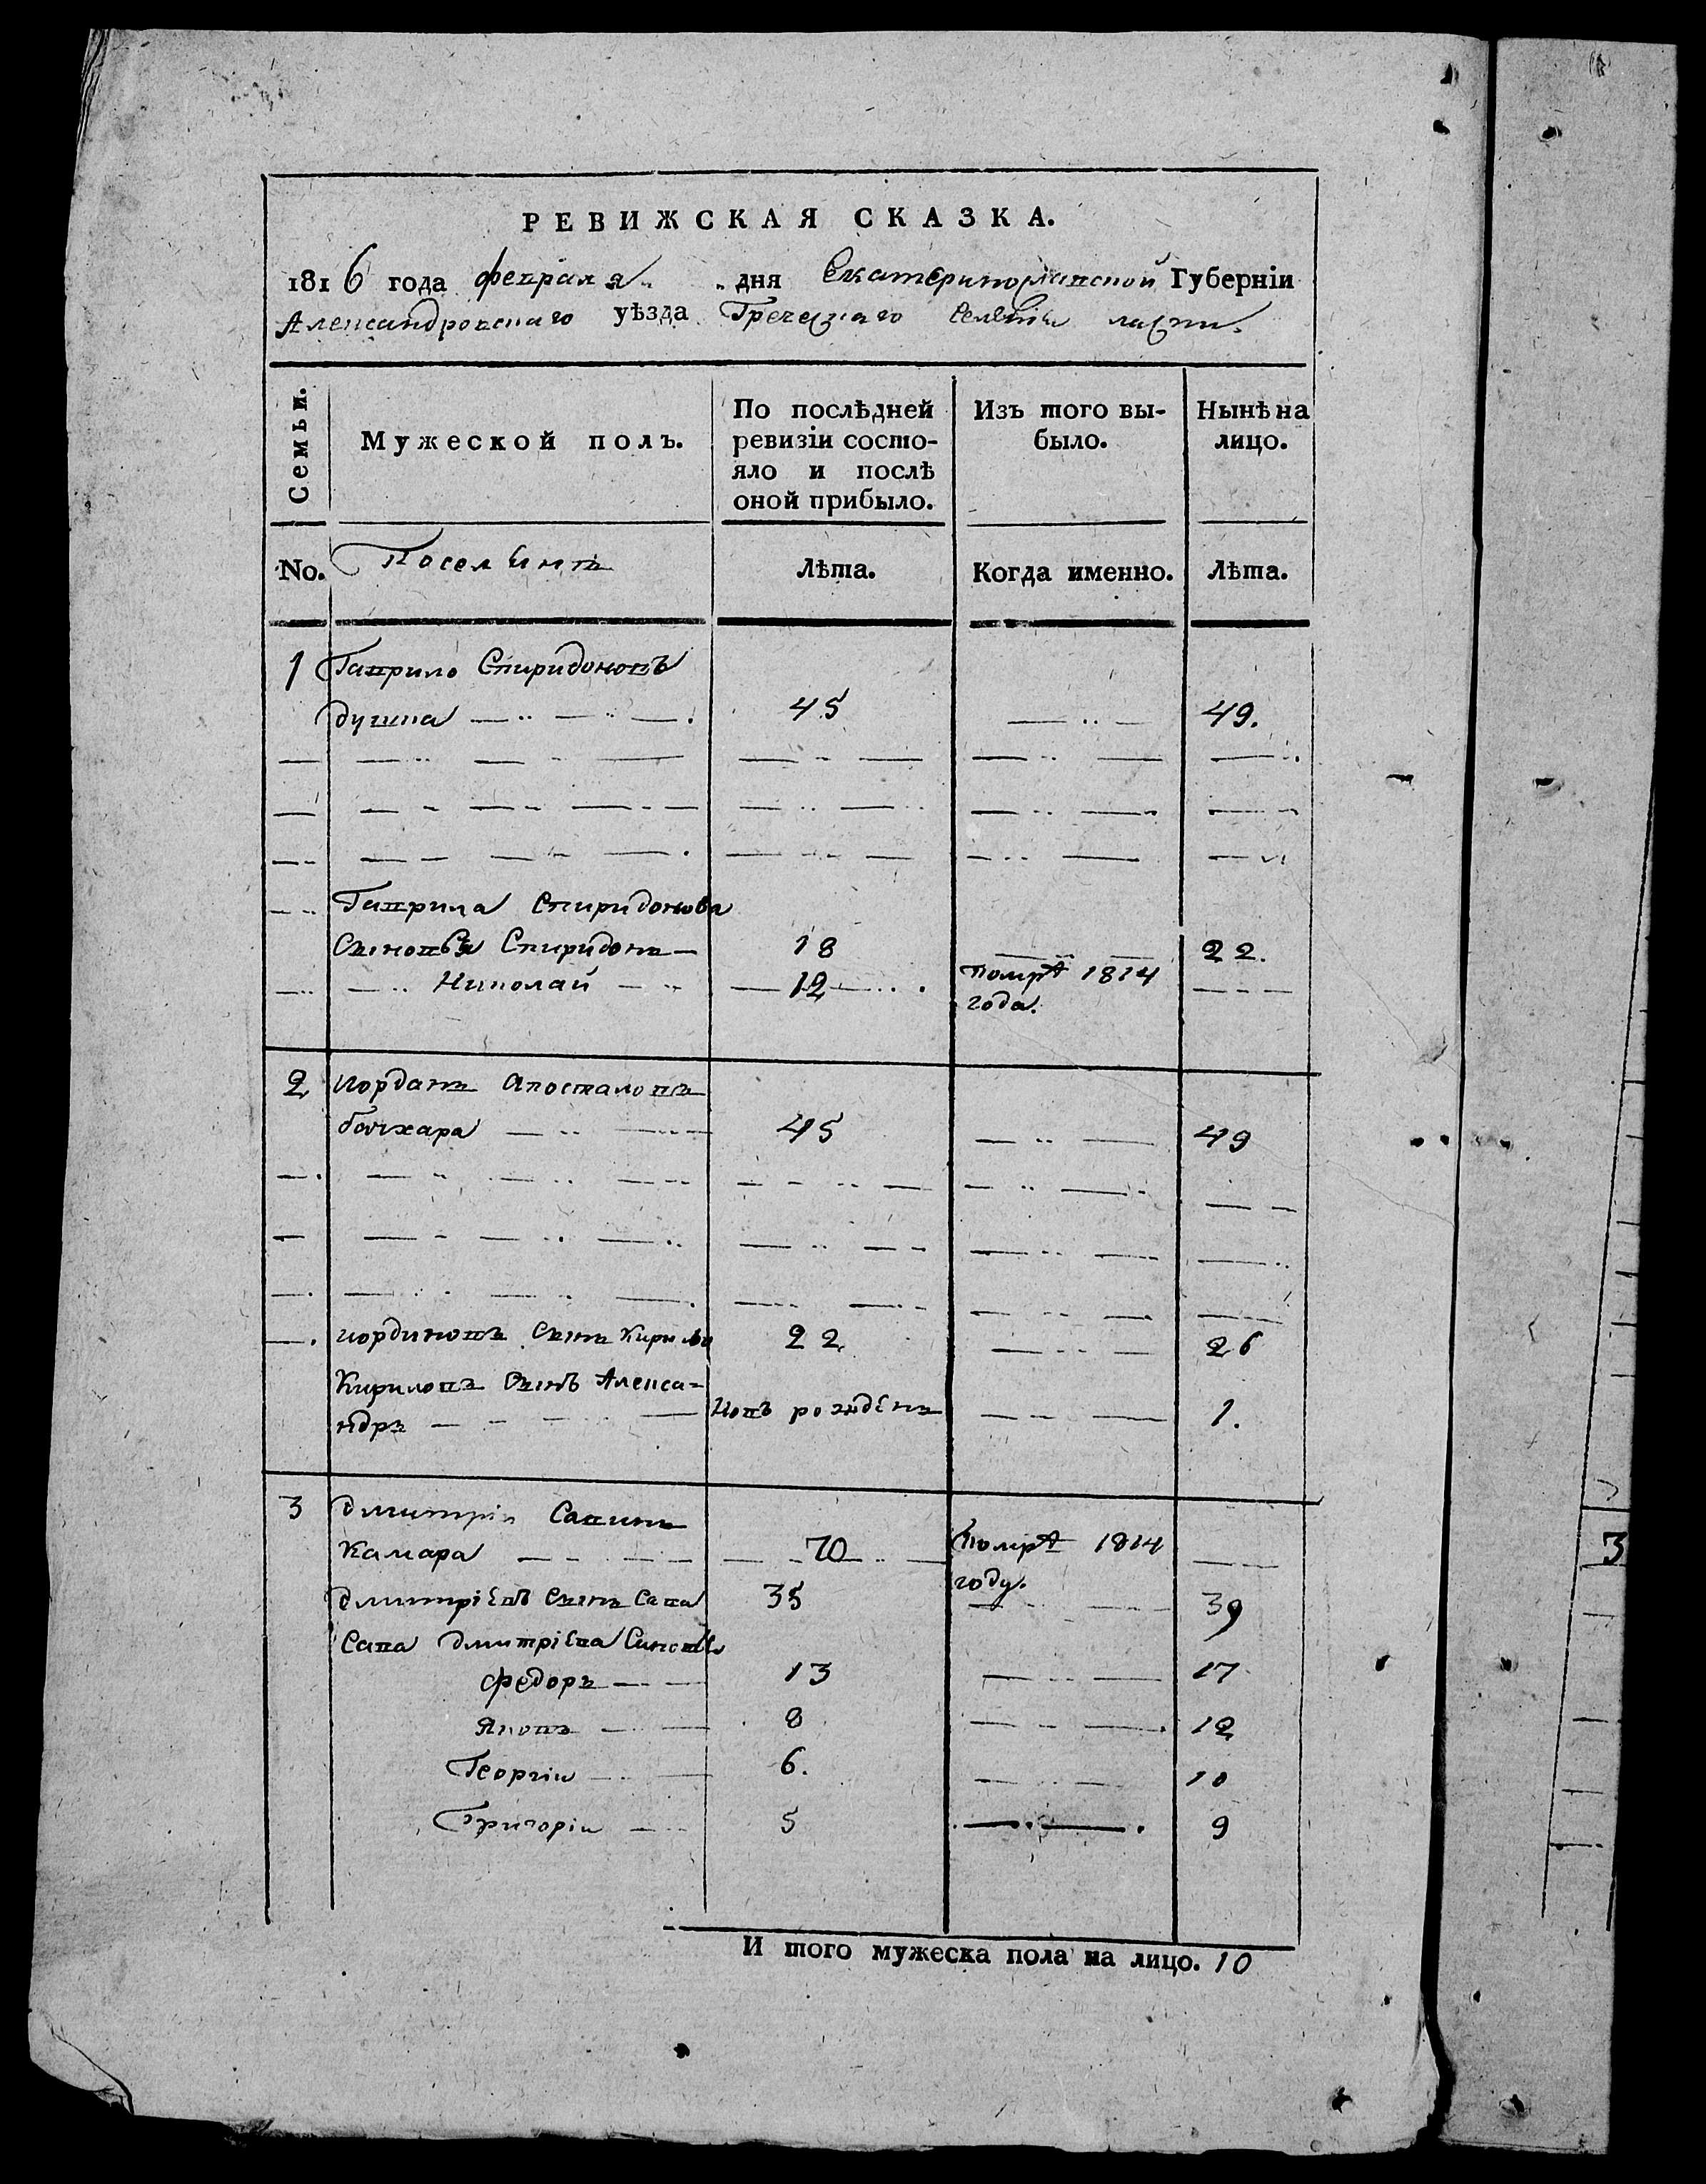 РЕВИЖСКАЯ СКАЗКА.
1816 года февраля „ „ дня Екатеринославской Губерніи
Александровскаго уѣзда Греческаго Селенія ласпи.
Семьи.
Мужеской полъ.
По послѣдней ревизіи состо-
яло и послѣ
оной прибыло.
Изъ того вы-
было.
Нынѣ на
лицо.
No.
Поселянъ
Лѣта.
Когда именно.
Лѣта.
1 Гаврило Спиридоновъ
45 49.
Гаврила Спиридонова
Сыновья Спиридонъ 18 22.
Николай 12 помре 1814
года.
2 иорданъ Апосталовъ
45 49
иордановъ Сынъ Кирило 22 26
Кириловъ Сынъ Алекса-
ндръ Новъ рожденъ 1.
3 дмитріи Савинъ
Камара 70 помре 1814
году.
дмитріевъ Сынъ Сава 35 39
Сава дмитріева Синовья
федоръ 13 17
Яковъ 8 12
Георгіи 6. 10
Григоріи 5 9
И того мужеска пола на лицо. 10
3